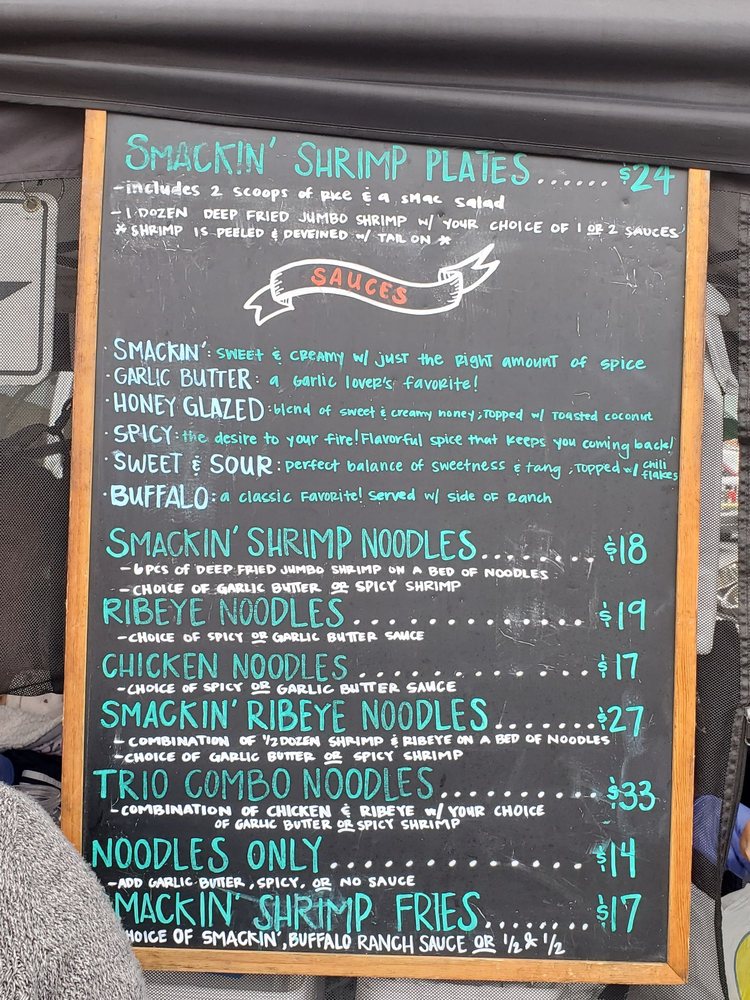 SMACKIN' SHRIMP PLATES...... $24
-includes 2 scoops of rice & a smac salad
-1 DOZEN DEEP FRIED JUMBO SHRIMP w/ YOUR CHOICE OF 1 OR 2 SAUCES
* SHRIMP IS PEELED & DEVEINED w/ TAIL ON *
SAUCES
· SMACKIN': SWEET & CREAMY w/ just the right amount of spice
· GARLIC BUTTER: a garlic lover's favorite!
· HONEY GLAZED: blend of sweet & creamy honey; TOPPED w/ TOASTED coconut
· SPICY: the desire to your fire! Flavorful spice that keeps you coming back!
· SWEET & SOUR: perfect balance of sweetness & tang; TOPPED w/ chili flakes
· BUFFALO: a classic FAVORITE! served w/ side of Ranch
SMACKIN' SHRIMP NOODLES....... $18
-6 PCS OF DEEP FRIED JUMBO SHRIMP ON A BED OF NOODLES
-CHOICE OF GARLIC BUTTER OR SPICY SHRIMP
RIBEYE NOODLES.............. $19
-CHOICE OF SPICY OR GARLIC BUTTER SAUCE
CHICKEN NOODLES.............. $17
-CHOICE OF SPICY OR GARLIC BUTTER SAUCE
SMACKIN' RIBEYE NOODLES...... $27
-COMBINATION OF 1/2 DOZEN SHRIMP & RIBEYE ON A BED OF NOODLES
-CHOICE OF GARLIC BUTTER OR SPICY SHRIMP
TRIO COMBO NOODLES.......... $33
-COMBINATION OF CHICKEN & RIBEYE w/ YOUR CHOICE
OF GARLIC BUTTER OR SPICY SHRIMP
NOODLES ONLY............... $14
-ADD GARLIC BUTTER, SPICY, OR NO SAUCE
MACKIN' SHRIMP FRIES....... $17
HOICE OF SMACKIN', BUFFALO RANCH SAUCE OR 1/2 & 1/2